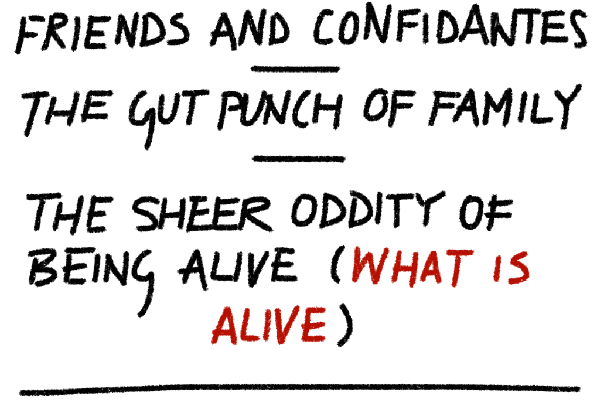 FRIENDS AND CONFIDANTES
THE GUT PUNCH OF FAMILY
THE SHEER ODDITY OF
BEING ALIVE (WHAT IS
ALIVE)